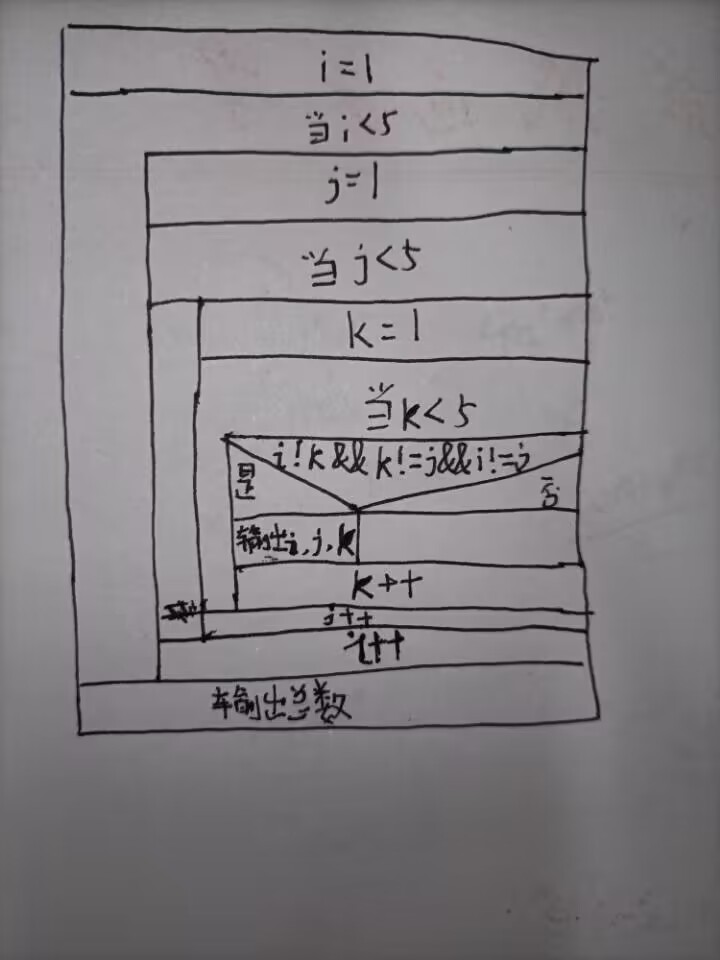 i=1
当i<5
j=1
当j<5
k=1
当k<5
i!k&&k!=j&&i!=j
是
否
输出i,j,k
k++
j++
i++
输出总数